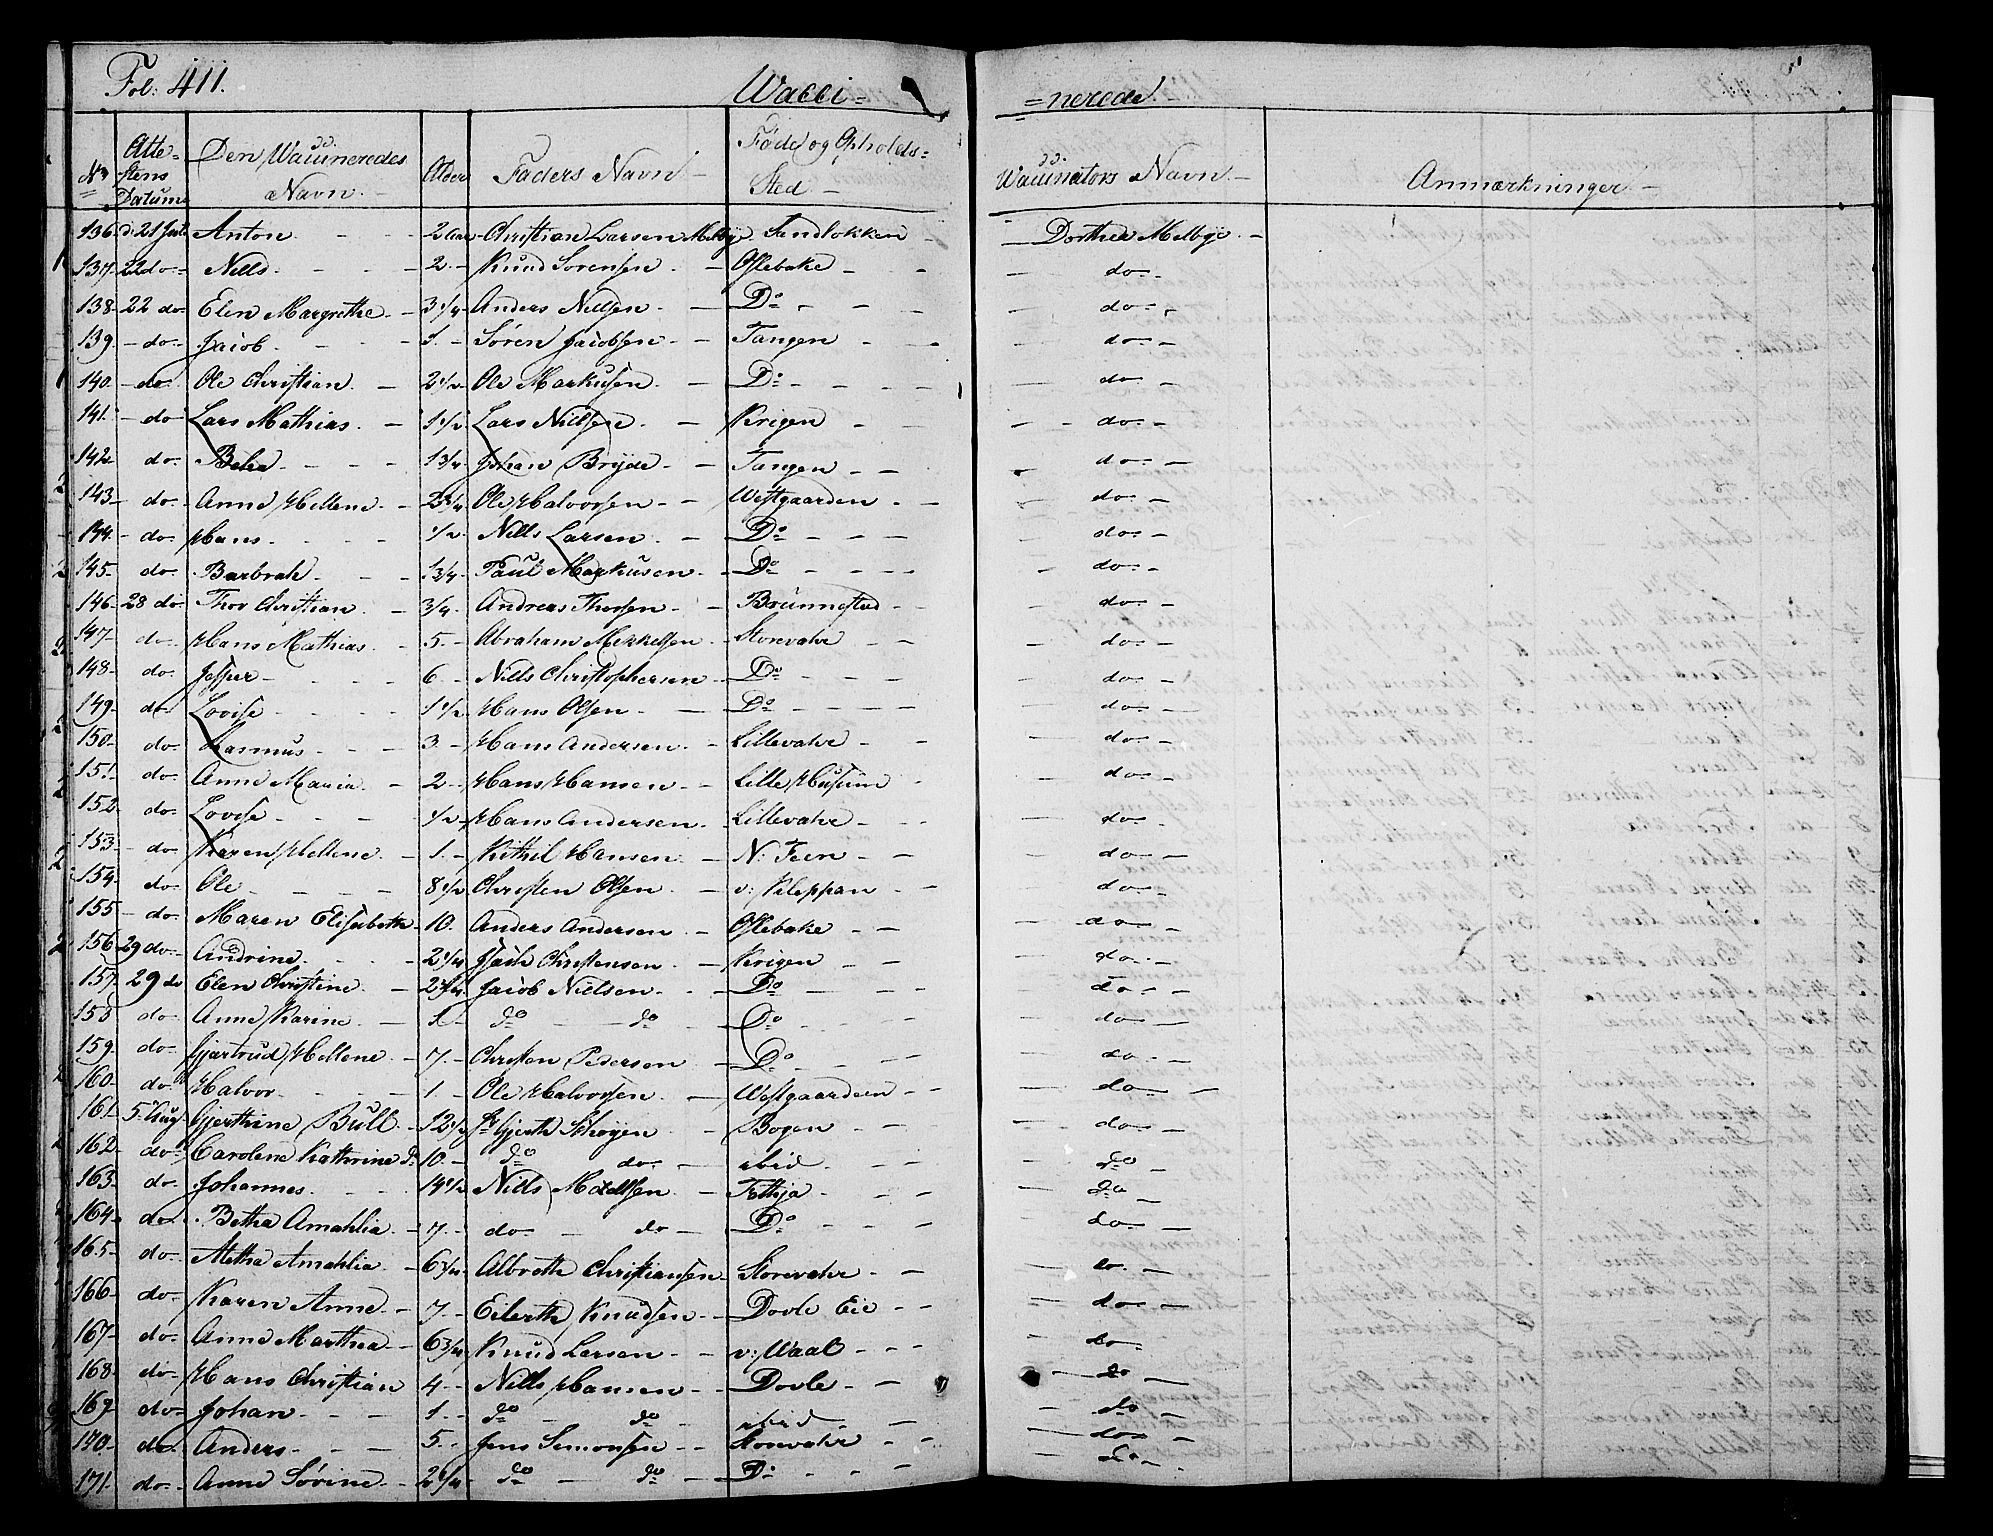 Fol: 411. Wacci= =nerede
Nº Atte-stens Datum Den Waccineredes Navn Alder Faders Navn Føde og Opholds-Sted Waccinators Navn Anmærkninger
136 d: 21 Juli Anton 2 Aar Christian Larsen Melbye Sandlokken Dorthea Melbye
137 22 do Niels 2 Knud Sørensen Oslebake do
138 22 do Elen Margrethe 3 1/4 Anders Nielsen Do do
139 do Jacob 1 Søren Jacobsen Tangen do
140 do Ole Christian 2 1/2 Ole Markusen Do do
141 do Lars Mathias 1 1/2 Lars Nielsen Krigen do
142 do Belia 1 3/4 Johan Bryde Tangen do
143 do Anne Hellene 2 3/4 Ole Halvorsen Westgaarden do
144 do Hans 1/2 Niels Larsen Do do
145 do Barbrah 1 3/4 Paul Markusen Do do
146 28 do Thor Christian 3/4 Andreas Thorsen Brunnestad do
147 do Hans Mathias 5 Abraham Mikkelsen Storevahr do
148 do Jesper 6 Niels Christophersen Do do
149 do Lovise 1 1/2 Hans Olsen Do do
150 do Rasmus 3 Hans Andersen Lillevahr do
151 do Anne Maria 2 Hans Hansen Lille Husum do
152 do Lovise 1/2 Hans Andersen Lillevahr do
153 do Karen Hellene 1 Kithil Hansen N: Feen do
154 do Ole 8 1/2 Christen Olsen v: Kleppan do
155 do Maren Elisabeth 10 Anders Andersen Oslebake do
156 29 do Andrine 2 1/4 Isach Christensen Krigen do
157 29 do Elen Christine 2 3/4 Jacob Nielsen Do do
158 do Anne Karine 1 do do Do do
159 do Gjertrud Hellene 7 Christen Pedersen Do do
160 do Halvor 1 Ole Halvorsen Westgaardeen do
161 5 Aug Gjerthine Bull 12 1/2 Gjerth Schøyen Bogen do
162 do Carolene Kathrine do 10 do do ibid do
163 do Johannes 14 1/2 Niels Nielsen Fethja do
164 do Betha Amahlia 7 do do Do do
165 do Aletha Amahlia 6 3/4 Albreth Christiansen Storevahr do
166 do Karen Anne 7 Eilerth Knudsen Dovle Eie do
167 do Anne Marthea 6 3/4 Knud Larsen v: Waal do
168 do Hans Christian 4 Niels Hansen Dovle do
169 do Johan 1 do do ibid do
170 do Anders 5 Jens Simonsen Storevahr do
171 do Anne Sørine 2 1/4 do do Do do